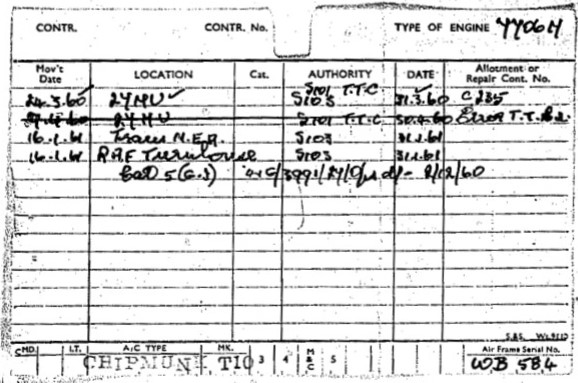 CONTR. CONTR. No. TYPE OF ENGINE
Mov't Date LOCATION Cat. AUTHORITY DATE Allotment or Repair Cont. No.
S101 T.T.C
24.3.60 27MU S103 31.3.60 C235
27MU S101 T.T.C 30.4.60 Error T.T.
16.1.61 Trans N.E.A. S103 31.1.61
16.1.61 RAF Turnhouse S103 31.1.61
Cat 5 (G.S) 8/12/60
S.B.S.
CMD. LT. A/C TYPE MK. 3 4 M&C 5 Air Frame Serial No.
CHIPMUNK T10 WB 584